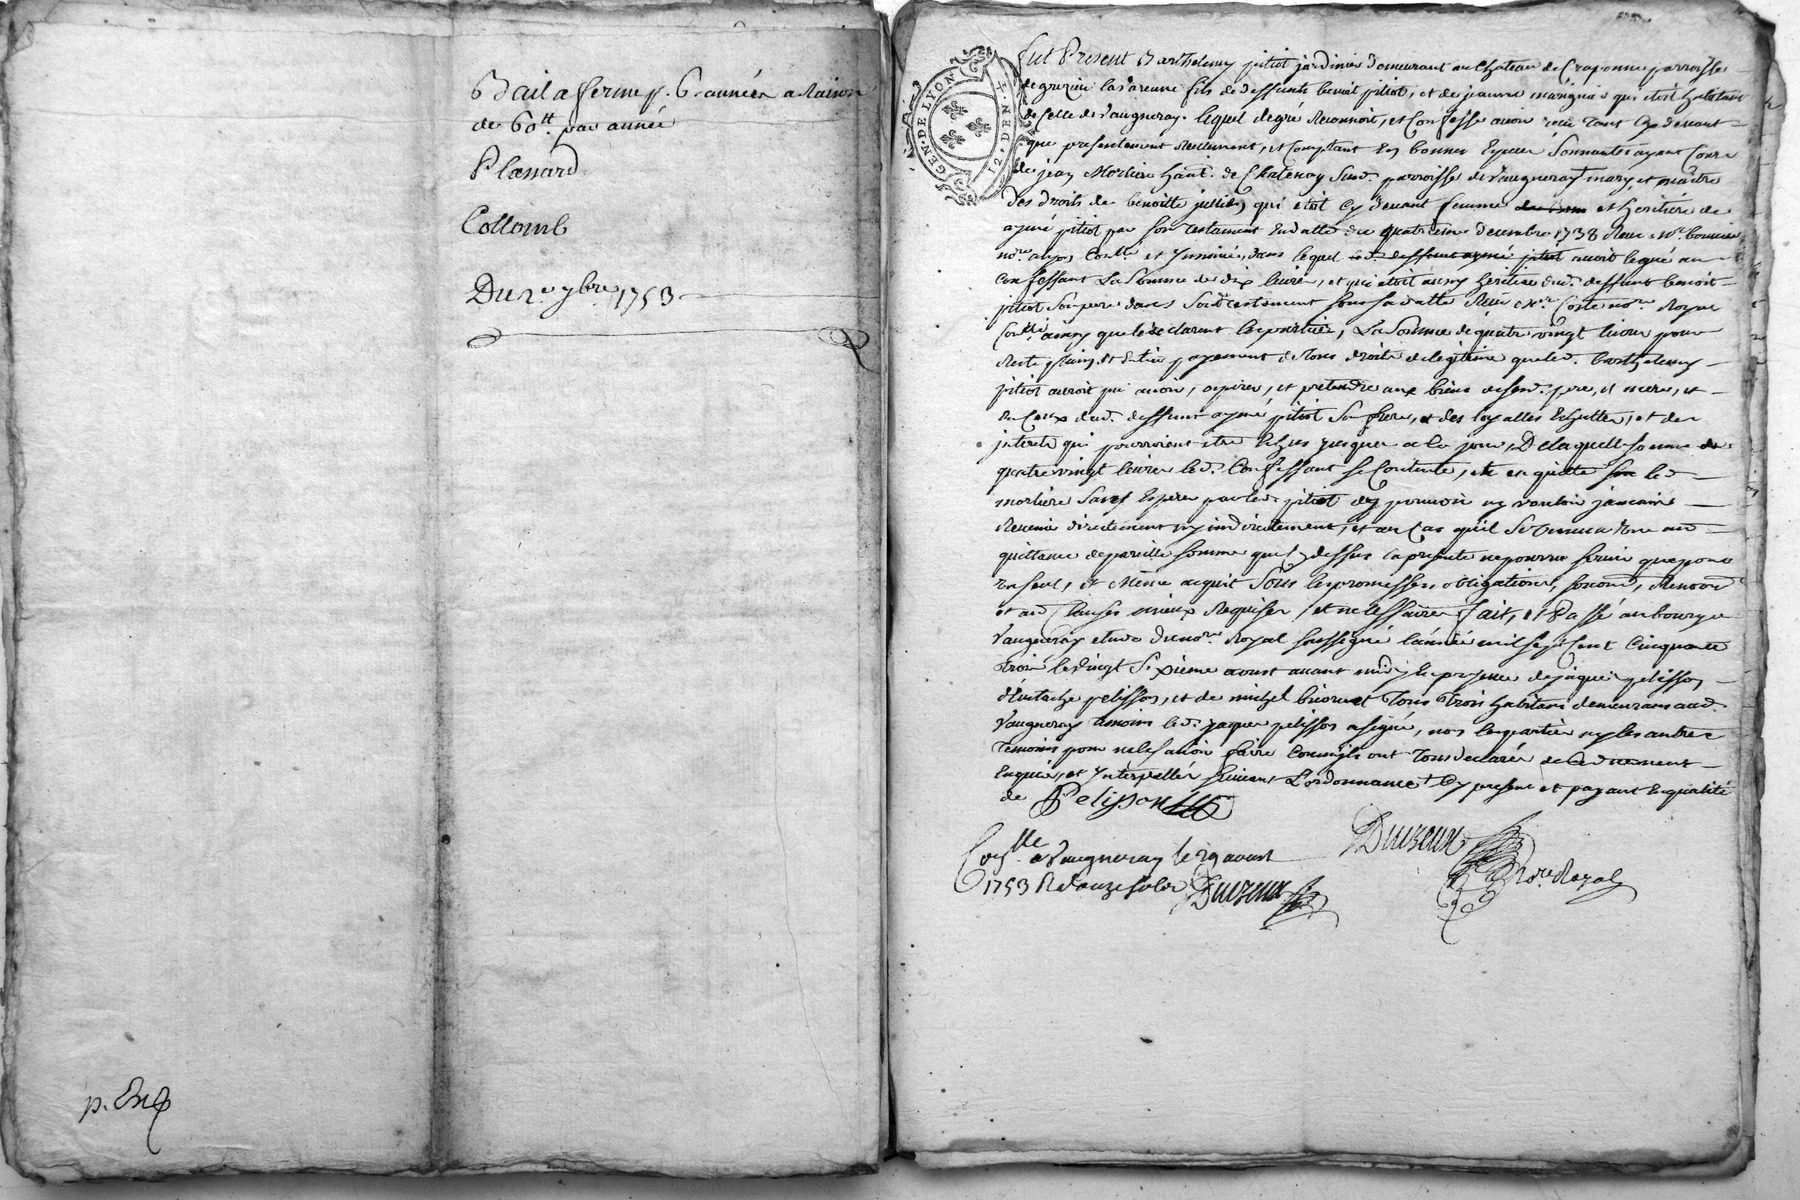 Bail a ferme p. 6 années a Raison
de 60tt par année
Planard
Collomb
Du 2e 7bre 1753
p. Enq
GEN. DE LYON
12. DEN. T.
fut Present Barthelemy pitiot jardinier demeurant au Chateau de Craponne parroisse
de grezieu la varenne fils de deffunts benoit pitiot, et de jeanne marignié qui etoit habitant
de Celle de Vaugneray. lequel de gré Reconnoit, et Confesse avoir receu tant Cy devant
que presentement Reellement, et Comptant En bonnes Especes Sonnantes ayant Cours
de jean Mortiere hant. de Chatenay Susd. parroisse de Vaugneray mary, et maitre
des droits de benoitte jullien, qui etoit Cy devant femme et heritiere de
aymé pitiot par son Testament En datte du quatrieme decembre 1738 Receu Me
nore Conlle et Insinué, dans lequel led. deffunt aymé pitiot avoit legué au
Confessant La Somme de dix livres, et qui etoit aussy heritier dud. deffunt benoit
pitiot Son pere dans Sond. testament sous sa datte Receu Me Coste nore Royal
ainsy que le declarent les parties, La Somme de quatre vingt livres pour
Reste, plain, et Entier payement de tous droits de legitime que led. barthelemy
pitiot auroit pu avoir, esperer, et pretendre aux biens de sesd. pere, et mere, et
de Ceux dud. deffunt aymé pitiot Son frere, et des loyalles Echuttes, et des
interets qui pourroient etre Echus jusques a Ce jour, De laquelle somme de
quatre vingt livres led. Confessant se Contente, et en quitte led.
mortiere Sans Espoir par led. pitiot d'y pouvoir ny vouloir jamais
Revenir directement ny indirectement, et au Cas qu'il Se trouva autre
quittance de pareille somme que Cy dessus la presente ne pourra servir que pour
Un seul, et Même acquit Sous les promesses, obligations, soumons, Renonons
et aud. Clauses mieux Requises, et necessaires fait, et Passé au bourg de
Vaugneray etude du nore Royal soussigné l'année mil sept Cent Cinquante
trois le vingt Sixieme aoust avant midy En presence de jaque pelisson,
d'Eustache pelisson, et de michel tous trois habitans demeurans aud.
Vaugneray temoins led. jaques pelisson a signé, non les parties ny les autres
temoins pour ne le savoir faire Comm'ils ont tous declaré de Ce duement
Enquis, et Interpellés suivant L'ordonnance + Cy present et payant En qualité
de Pelisson
Duezeux
Nore Royal
Conlle a Vaugneray le 29 aoust
1753 R douze sols Duezeux